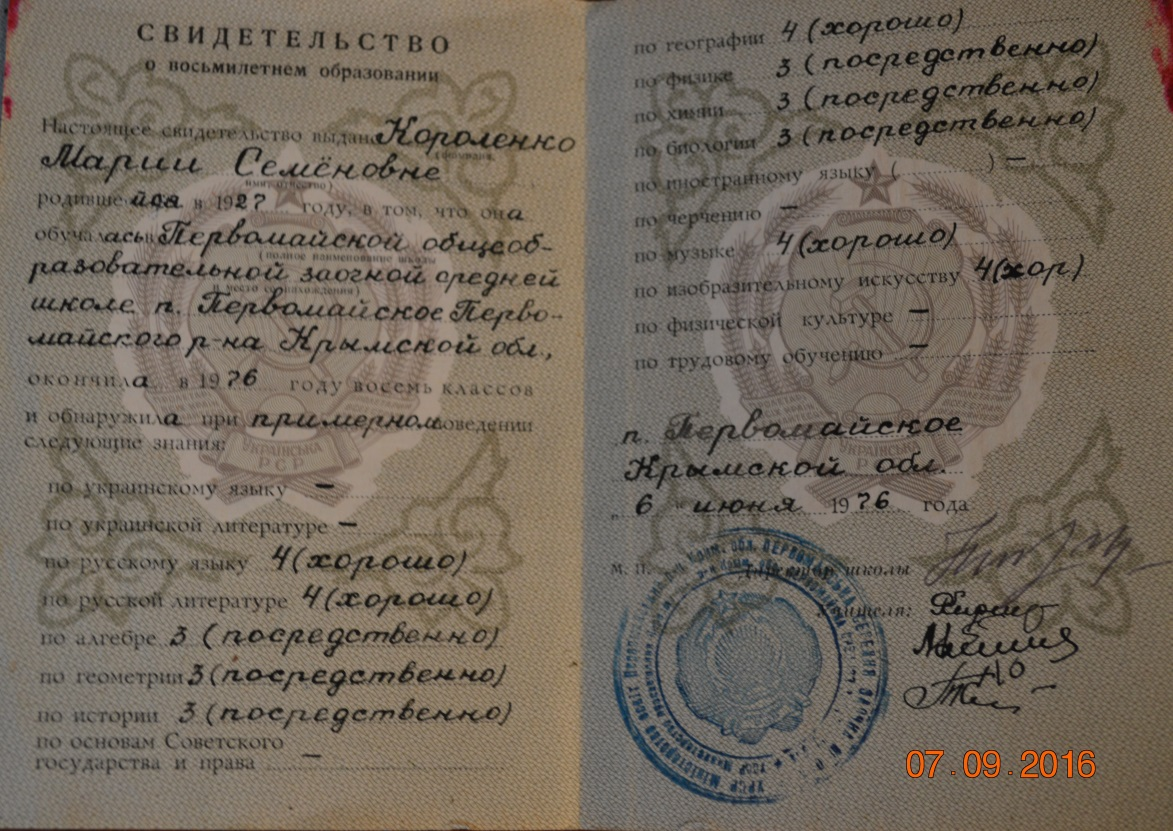 СВИДЕТЕЛЬСТВО
о восьмилетнем образовании
Настоящее свидетельство выдано Короленко
Марии Семёновне
родившейся в 1927 году, в том, что она
обучалась в Первомайской общеоб-
(полное наименование школы
разовательной заочной средней
и место ее нахождения)
школе п. Первомайское Перво-
майского р-на Крымской обл.,
окончила в 1976 году восемь классов
и обнаружила при примерном поведении
следующие знания:
УКРАЇНСЬКА
РСР
по украинскому языку —
по украинской литературе —
по русскому языку 4 (хорошо)
по русской литературе 4 (хорошо)
по алгебре 3 (посредственно)
по геометрии 3 (посредственно)
по истории 3 (посредственно)
по основам Советского
государства и права —
по географии 4 (хорошо)
по физике 3 (посредственно)
по химии 3 (посредственно)
по биологии 3 (посредственно)
по иностранному языку ( ) —
по черчению —
по музыке 4 (хорошо)
по изобразительному искусству 4 (хор)
по физической культуре —
по трудовому обучению —
УКРАЇНСЬКА
п. Первомайское
Крымской обл.
„ 6 " июня 1976 года
м. п. Директор школы
Учителя:
07.09.2016